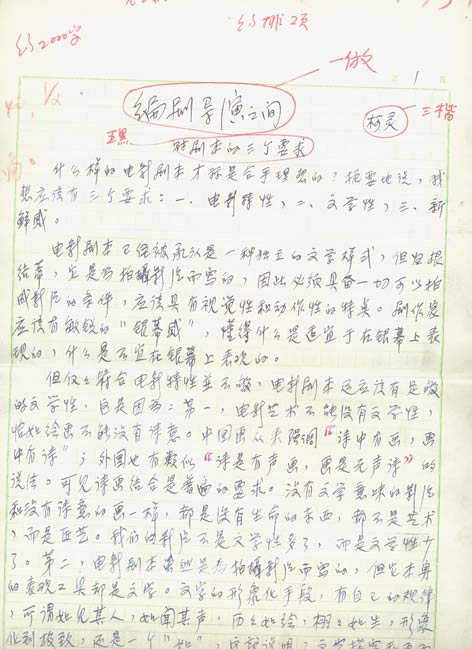 约2000字
约排2页
一做
1
编剧导演之间
柯灵
三楷
对剧本的三个要求
什么样的电影剧本才称是合乎理想的？扼要地说，我
想应该有三个要求：一、电影特性，二、文学性，三、新
鲜感。
电影剧本已经被承认是一种独立的文学样式，但归根
结蒂，它是为拍摄影片而写的，因此必须具备一切可以拍
成影片的条件，应该具有视觉性和动作性的特点。剧作家
应该有敏锐的“银幕感”，懂得什么是适宜于在银幕上表
现的，什么是不宜在银幕上表现的。
但仅仅符合电影特性并不够，电影剧本还应该有足够
的文学性，这是因为：第一，电影艺术不能没有文学性，
恰如绘画不能没有诗意。中国画从来强调“诗中有画，画
中有诗”；外国也有类似“诗是有声画，画是无声诗”的
说法。可见诗画结合是普遍的要求。没有文学意味的影片
和没有诗意的画一样，都是没有生命的东西，都不是艺术
，而是匠艺。我们的影片不是文学性多了，而是文学性少
了。第二，电影剧本虽然是为拍摄影片而写的，但它本身
的表现工具却是文学。文学的形象化手段，有自己的规律
，可谓如见其人，如闻其声，历历如绘，栩栩如生，形象
化到极致，还是一个“如”，